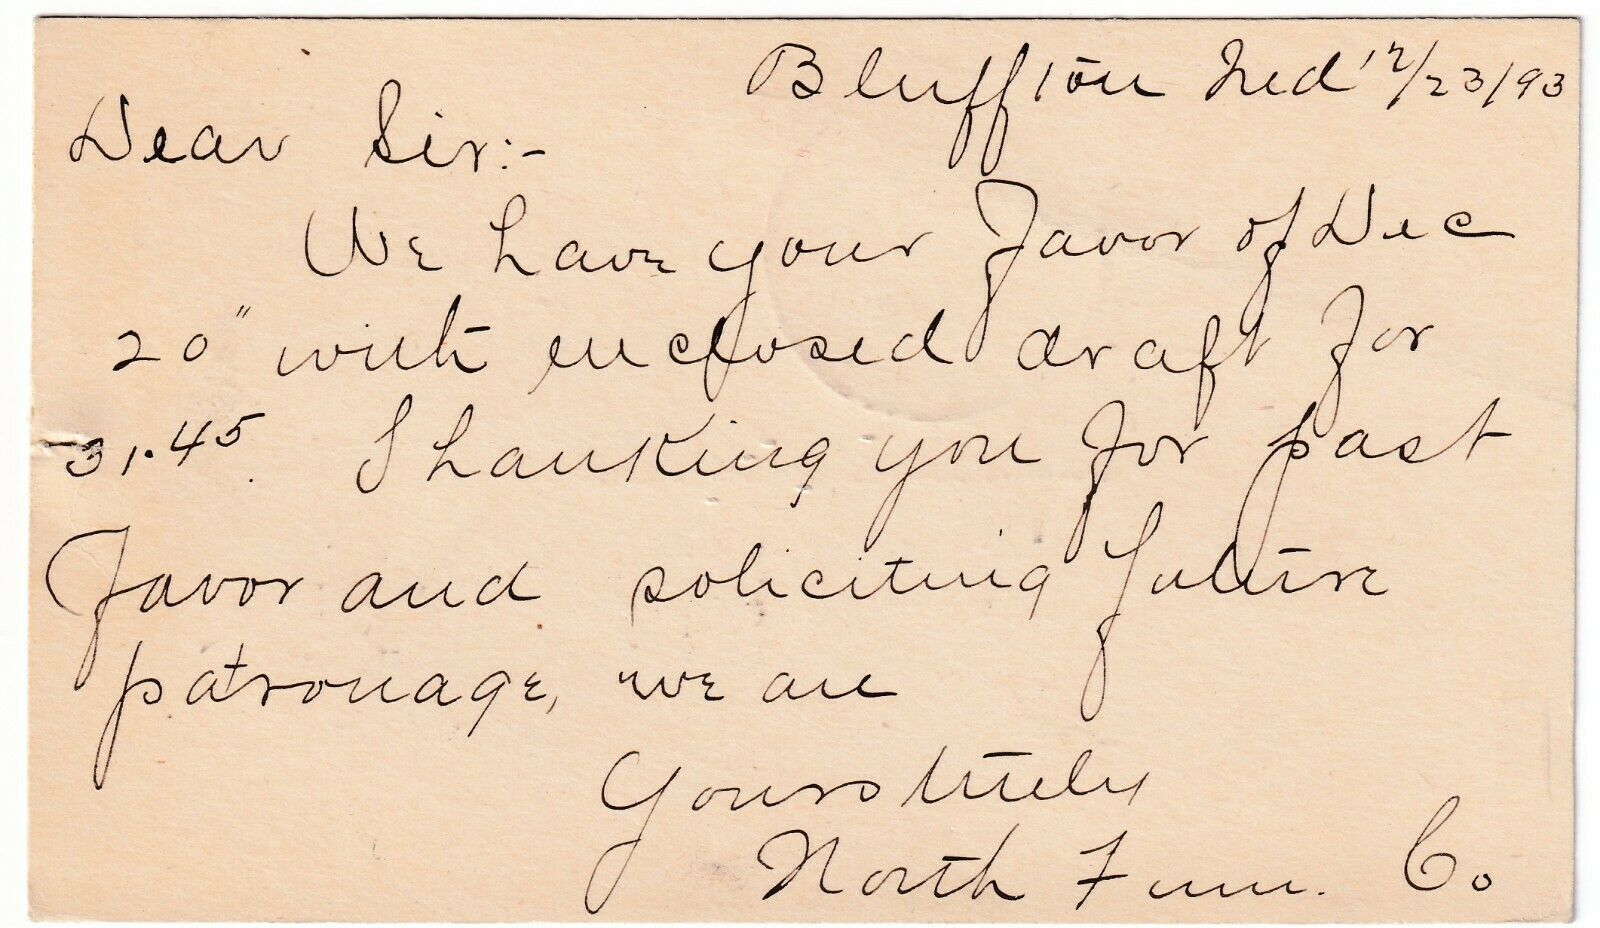 Bluffton Ind 12/23/93
Dear Sir:-
We have your favor of Dec
20" with enclosed draft for
31.45. Thanking you for past
favor and soliciting future
patronage, we are
Yours truely
North Furn. Co.